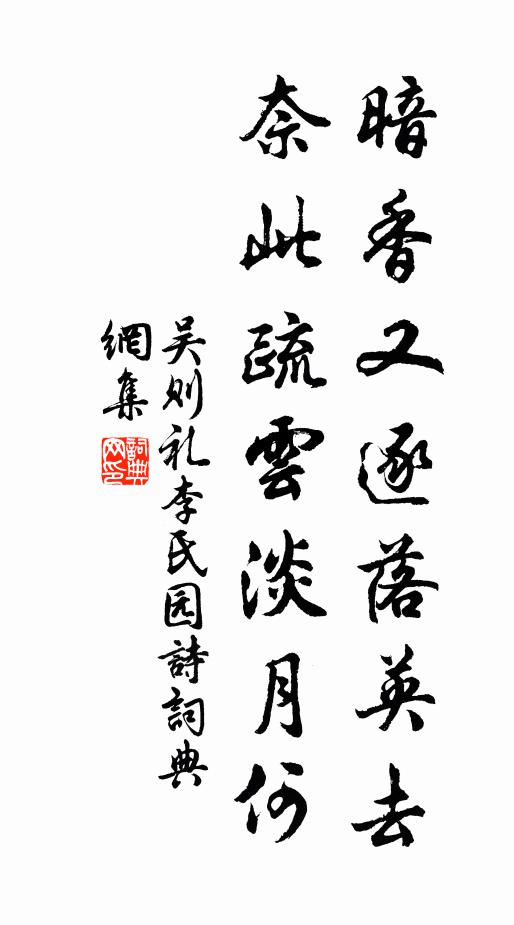 暗香又逐落英去
奈此疏雲淡月何
吴则礼李氏园詩詞典
網集
詞典
网印